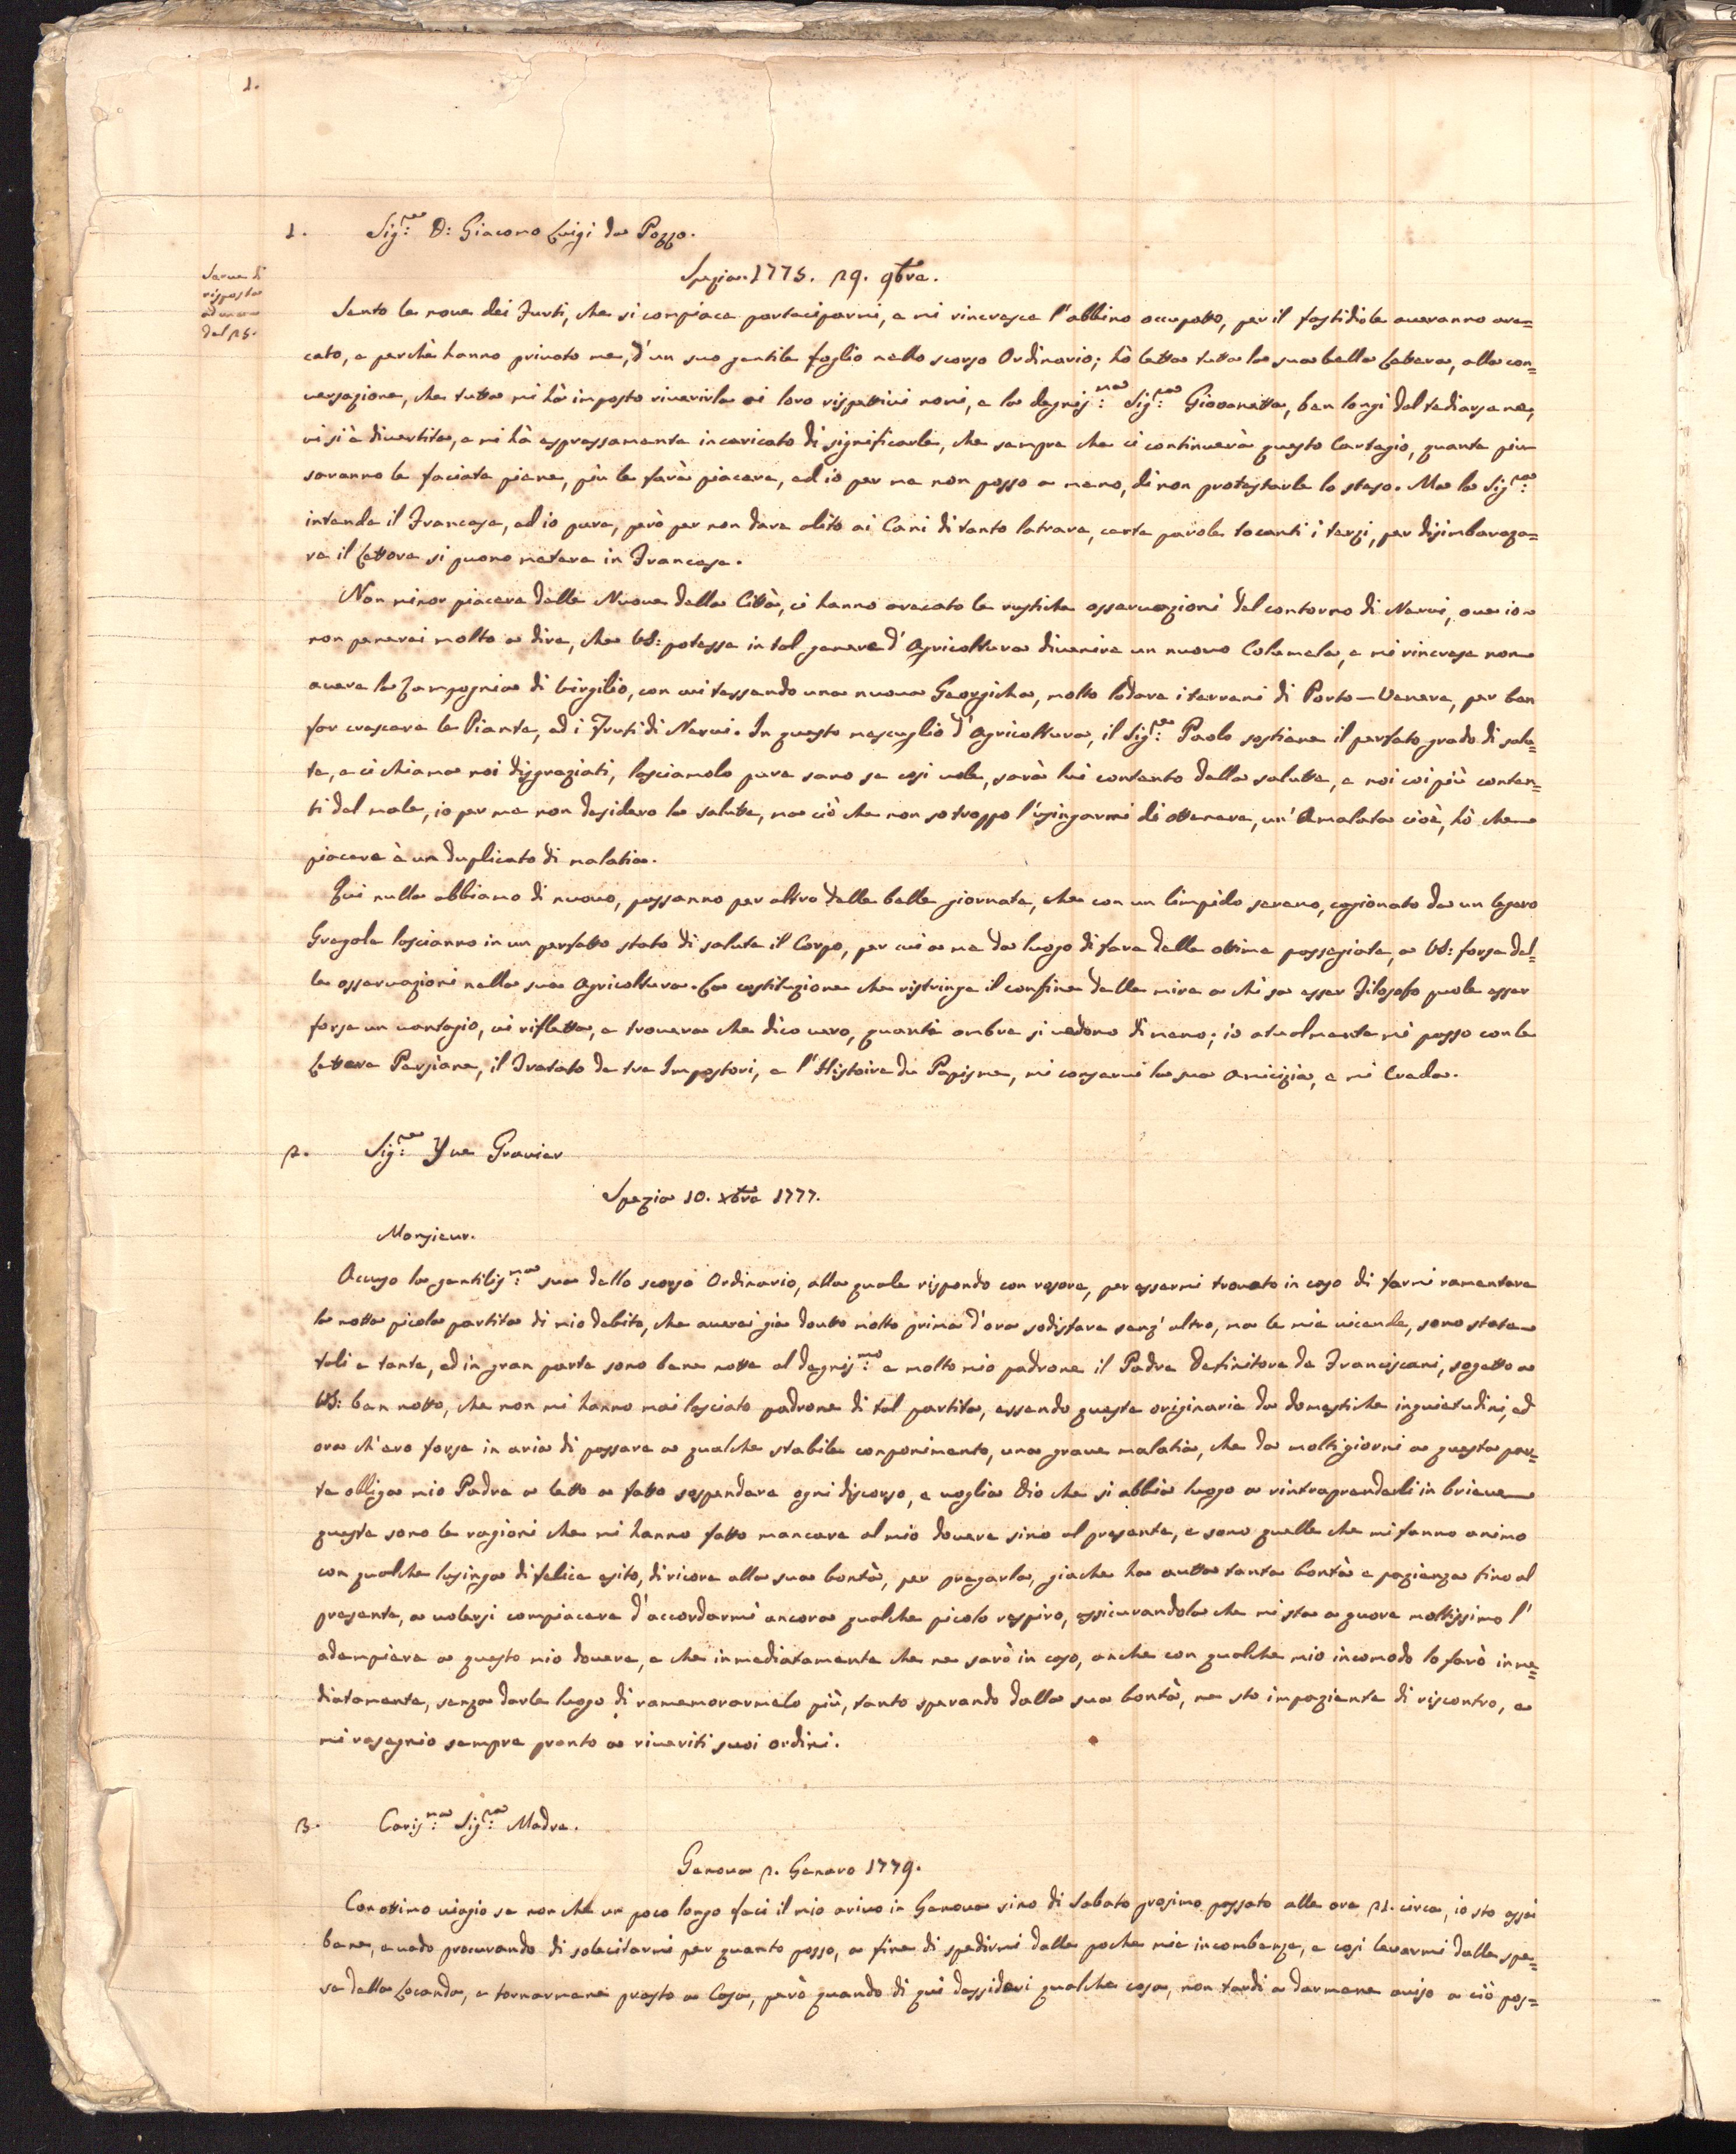 1.
1. Sig:re D: Giacomo Luigi da Pozzo.
Spezia. 1775. 29. 9bre.
Serve di
risposta
ad una
del 25.
Sento le nove dei Furti, che si compiace parteciparmi, e mi rincresce l'abbino occupatto, per il fastidio le averanno are=
cato, e perchè hanno privato me, d'un suo gentile foglio nello scorso Ordinario; hò letta tutta la sua bella Lettera, alla con=
versazione, che tutta mi hà imposto riverirla ai loro rispettivi nomi, e la degnis:ma Sig:ra Giovanetta, ben longi dal tediarsene,
vi si è divertita, e mi hà espressamente incaricato di significarle, che sempre che ci continuerà questo Cartagio, quante piu
saranno le faciate piene, più le farà piacere, ed io per me non posso a meno, di non protestarle lo steso. Ma la Sig:ra
intende il Francese, ed io pure, però per non dare adito ai Cani di tanto latrare, certe parole tocanti i terzi, per disimbaraza=
re il Lettore si puono metere in Francese.
Non minor piacere delle Nuove della Città, ci hanno arecato le rustiche osservazioni del contorno di Nervi, ove io
non penerei molto a dire, che VS: potesse in tal genere d'Agricoltura divenire un nuovo Columela, e mi rincrese non
avere la Zampognia di Virgilio, con cui tessendo una nuova Georgicha, molto lodare i terreni di Porto-Venere, per ben
far crescere le Piante, ed i Fruti di Nervi. In questo mescuglio d'Agricoltura, il Sig:re Paolo sostiene il perfato grado di salu=
te, e ci chiama noi disgraziati, lasciamolo pure sano se cosi vole, sarà lui contento della salutte, e noi coi più conten=
ti del male, io per me non desidero la salutte, ma ciò che non so troppo l'usingarmi di ottenere, un'Amalata cioè, hò che
piacere è un duplicato di malatia.
Qui nulla abbiamo di nuovo, passanno per altro delle belle giornate, che con un limpido sereno, cagionato da un legero
Gregale lascianno in un perfatto stato di salute il Corpo, per cui a me da luogo di fare delle ottime passegiate, a VS: forse del=
le osservazioni nella sua Agricoltura. La costituzione che ristringe il confine delle mire a chi sa esser Filosofo puole esser
forse un vantagio, vi rifletta, e troverà che dico vero, quante ombre si vedono di meno; io atualmente mi passo con le
Lettere Persiane, il Tratato de tre Impostori, e l'Histoire du Papisme, mi conservi la sua Amicizia, e mi Creda.
2. Sig:re Yve Gravier
Spezia 10. Xbre 1777.
Monsieur.
Accuso la gentilis:ma sua dello scorso Ordinario, alla quale rispondo con rosore, per essermi trovato in caso di farmi ramentare
la notta picola partita di mio debito, che averei già doutto molto prima d'ora sodisfare senz'altro, ma le mie vicende, sono state
tali e tante, ed in gran parte sono bene notte al degnis:mo e molto mio padrone il Padre Definitore de Franciscani, sogetto a
VS: ben notto, che non mi hanno mai lasciato padrone di tal partita, essendo queste originarie da domestiche inquietudini, ed
ora ch'ero forse in aria di passare a qualche stabile componimento, una grave malatia, che da molti giorni a questa par=
te obliga mio Padre a letto a fatto sospendere ogni discorso, e voglia Dio che si abbia luogo a rintraprenderli in brieve
queste sono le ragioni che mi hanno fatto mancare al mio dovere sino al presente, e sono quelle che mi fanno animo
con qualche lusinga di felice esito, di ricore alla sua bontà, per pregarla, giache ha autta tanta bontà e pazienza fino al
presente, a volersi compiacere d'accordarmi ancora qualche picolo respiro, assicurandola che mi sta a quore moltissimo l'
adempiere a questo mio dovere, e che inmediatamente che ne sarò in caso, anche con qualche mio incomodo lo farò inme=
diatamente, senza darle luogo di ramemorarmelo più, tanto sperando dalla sua bontà, ne sto impaziente di riscontro, e
mi rasegnio sempre pronto a riveriti suoi ordini.
3. Caris:ma Sig:ra Madre.
Genova 2. Genaro 1779.
Con ottimo viagio se non che un poco longo feci il mio arivo in Genova sino di Sabato prosimo passato alle ore 21. circa, io sto assai
bene, e vado procurando di solecitarmi per quanto posso, a fine di spedirmi dalle poche mie incombenze, e cosi levarmi dalla spe=
sa della Locanda, e tornarmene presto a Casa, però quando di qui dessideri qualche cosa, non tardi a darmene aviso a ciò pos=